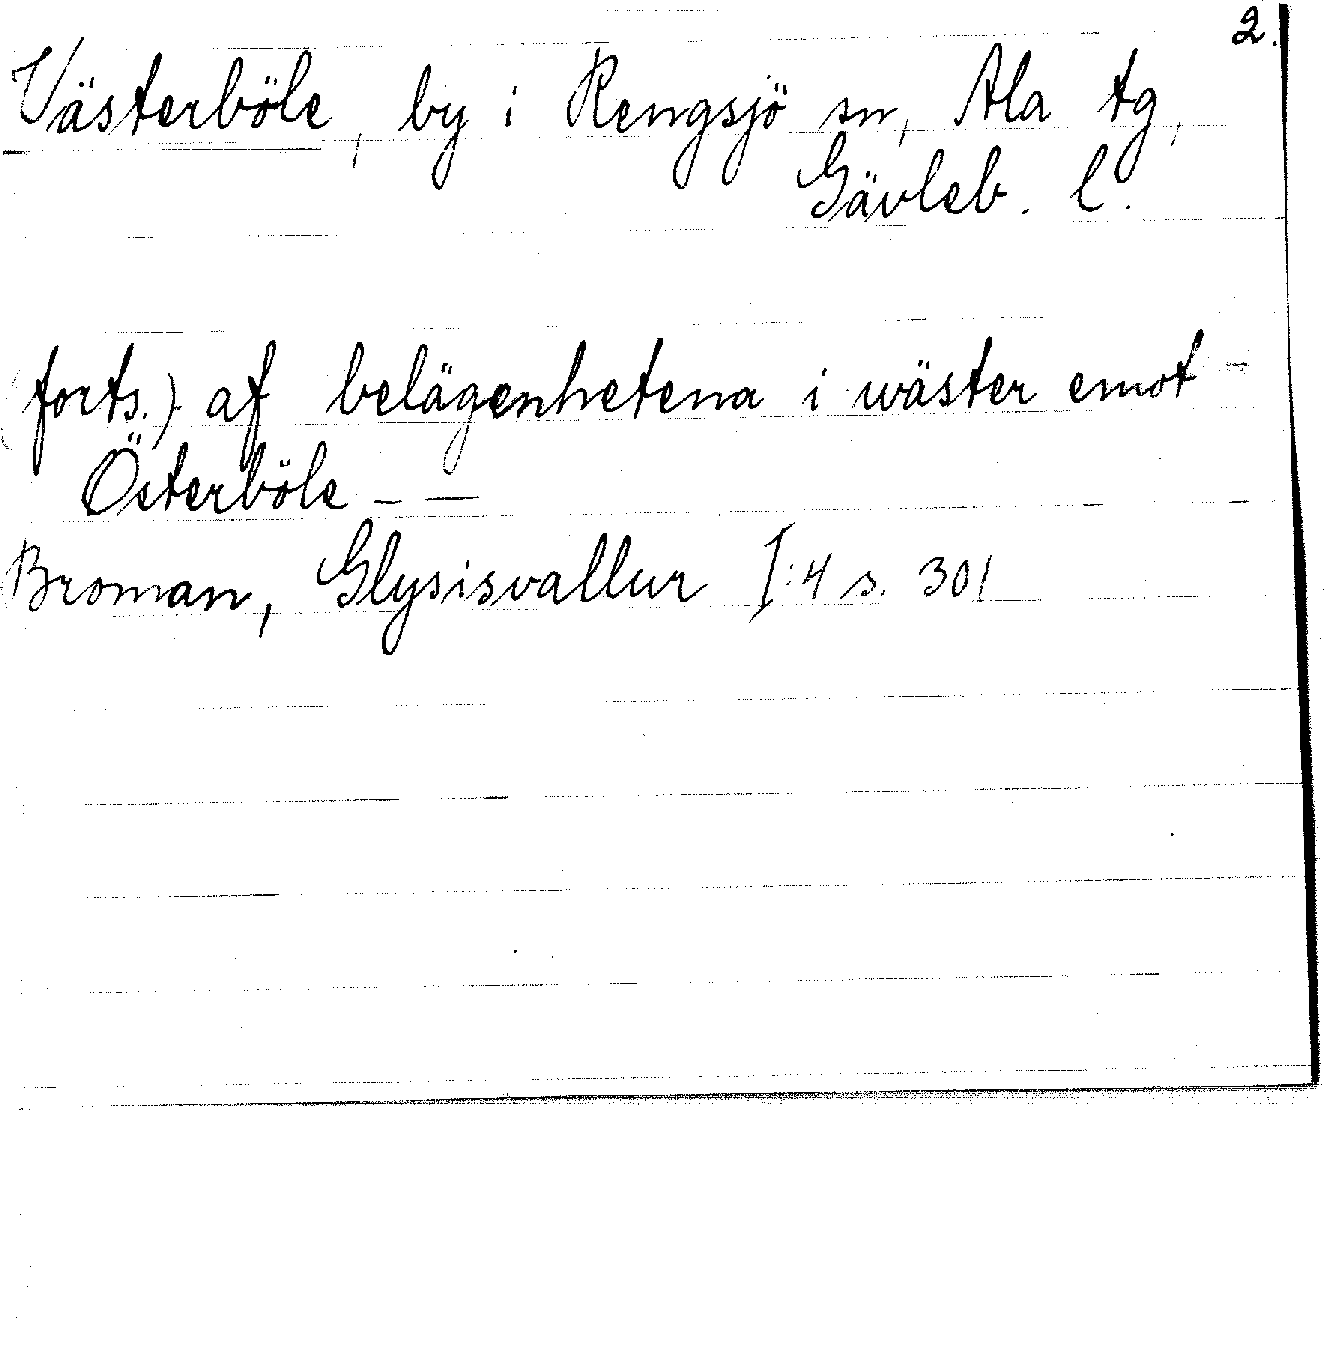 2.
Västerböle, by i Rengsjö sn, Ala tg,
Gävleb. l.
(forts.) af belägenhetena i wäster emot
Österböle – —
Broman, Glysisvallur I:4 s. 301